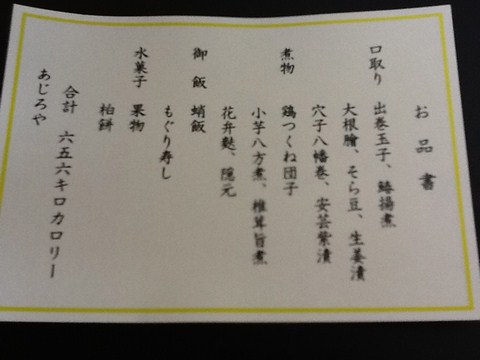 お品書
口取り 出巻玉子、鰆揚煮
大根膾、そら豆、生姜漬
穴子八幡巻、安芸紫漬
煮物 鶏つくね団子
小芋八方煮、椎茸旨煮
花弁麩、隠元
御飯 蛸飯
もぐり寿し
水菓子 果物
柏餅
合計 六五六キロカロリー
あじろや